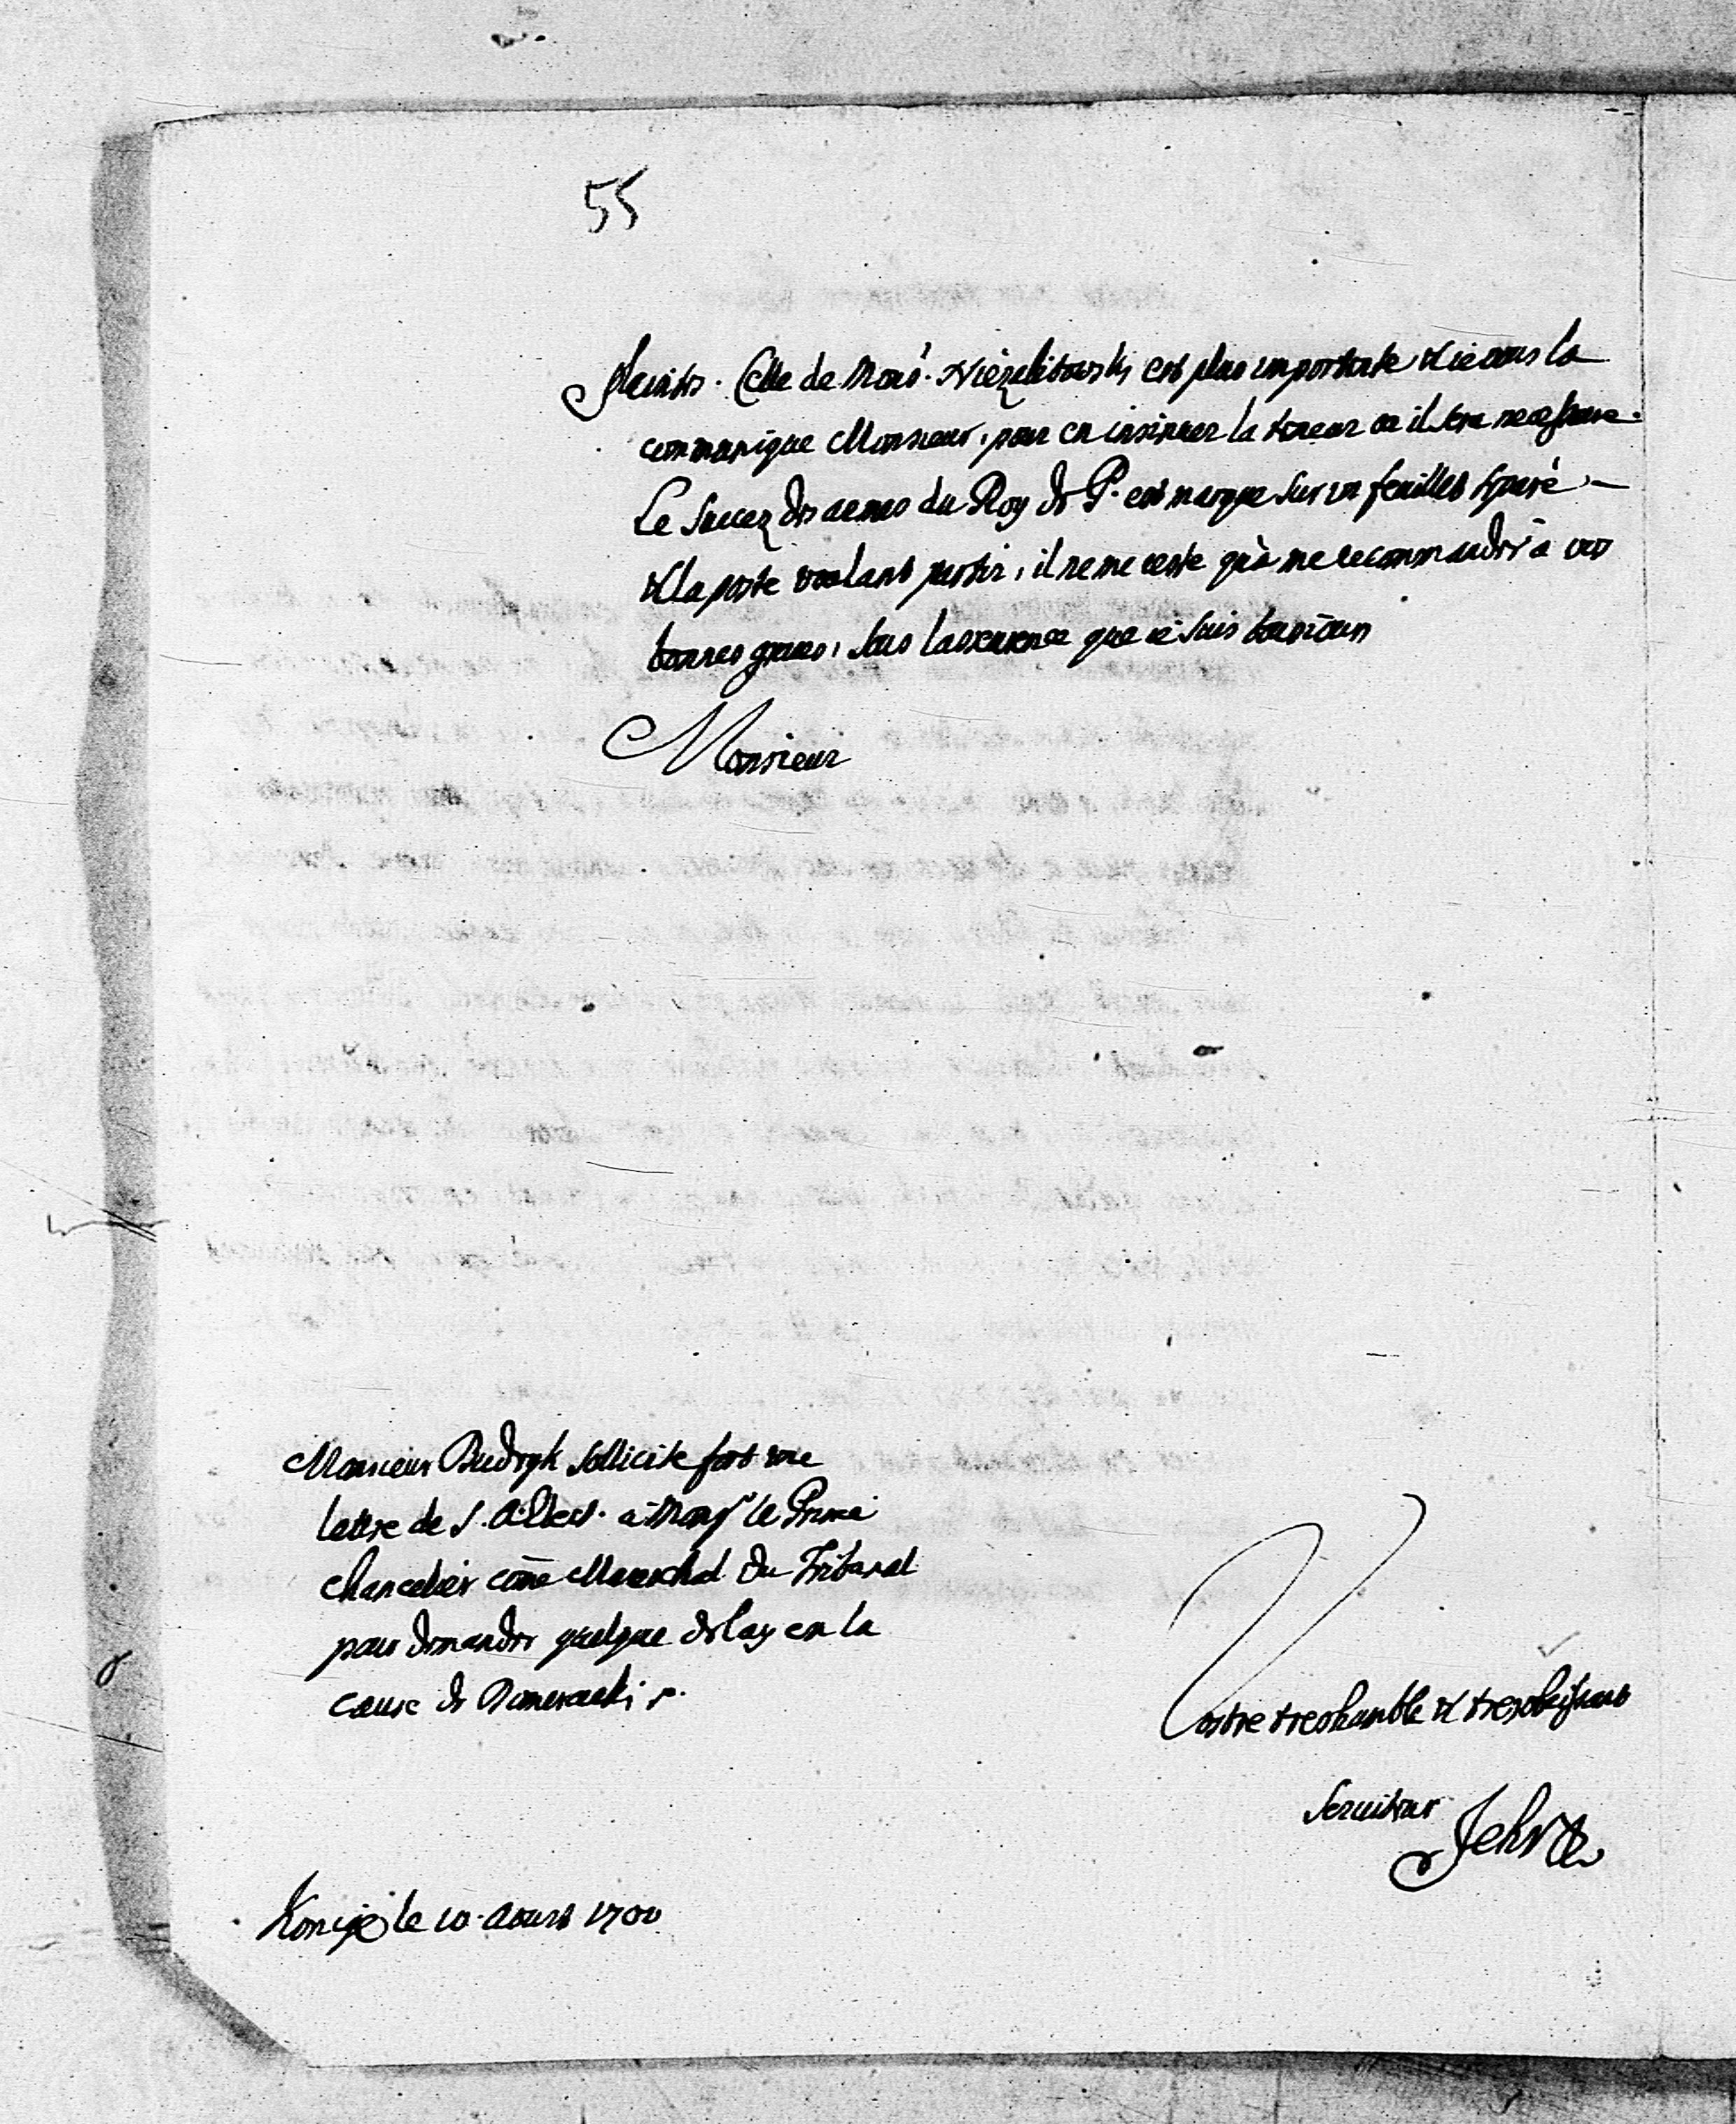 55
pleintes. Celle de Mons. Niezelitowski est plus importante & ie vous la
communique Monsieur, pour en insinuer la teneur ou il sera necessaire.
Le succez des armes du Roy de P. est marque sur un feuillet separé
& la poste voulant partir, il ne me reste qu'à me recommander à vos
bonnes graces, sous l'assurence que ie suis tousiours
Monsieur
Monsieur Budryk sollicite fort une
lettre de S. A. Elect. à Mons le Prince
Chancelier come Mareschal du Tribunal
pour demander quelque delay en la
cause de
Vostre treshumble & tresobeissant
Seruiteur
Konigsb le 10. Aoust 1700